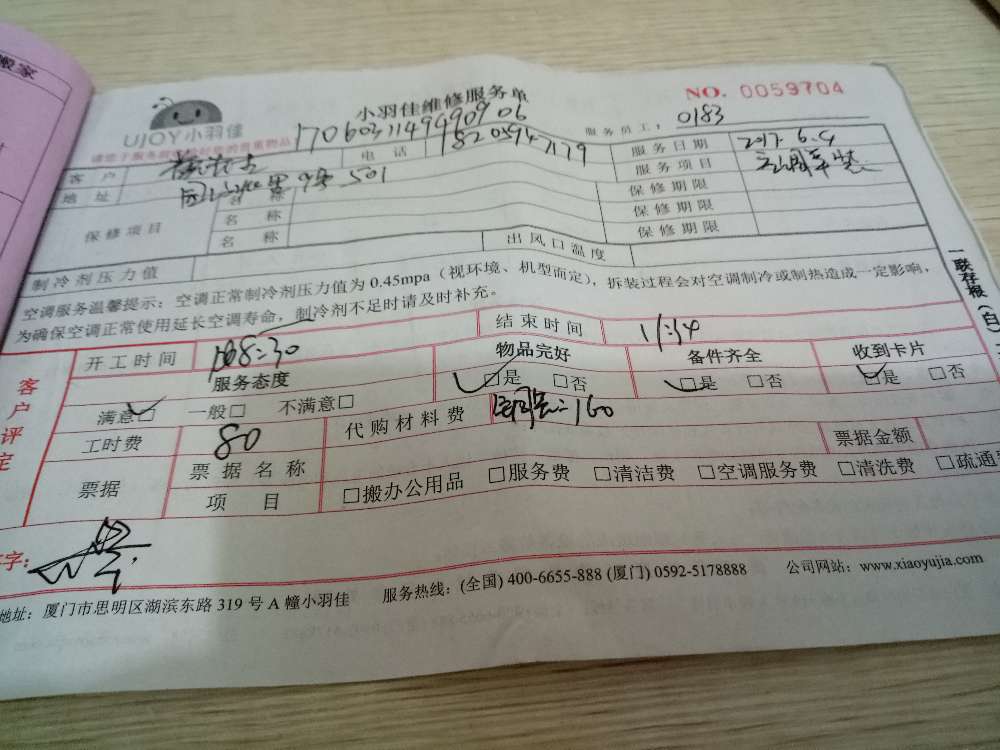 搬家
NO. 0059704
UJOY小羽佳
小羽佳维修服务单
服务员工： 0183
请您于服务前 的贵重物品
客户 电话 服务日期 2017.6.4
地址 9号 501 服务项目
名称 保修期限
保修项目 名称 保修期限
名称 保修期限
制冷剂压力值 出风口温度
空调服务温馨提示：空调正常制冷剂压力值为 0.45mpa（视环境、机型而定），拆装过程会对空调制冷或制热造成一定影响，
为确保空调正常使用延长空调寿命，制冷剂不足时请及时补充。
一联存根（白
客户评定
开工时间 8:30 结束时间 11:34
服务态度 物品完好 备件齐全 收到卡片
满意□ 一般□ 不满意□ □是 □否 □是 □否 □是 □否
工时费 80 代购材料费 160 票据金额
票据 票据名称
项目 □搬办公用品 □服务费 □清洁费 □空调服务费 □清洗费 □疏通
字：
地址：厦门市思明区湖滨东路 319 号 A 幢小羽佳 服务热线：(全国) 400-6655-888 (厦门) 0592-5178888 公司网站：www.xiaoyujia.com